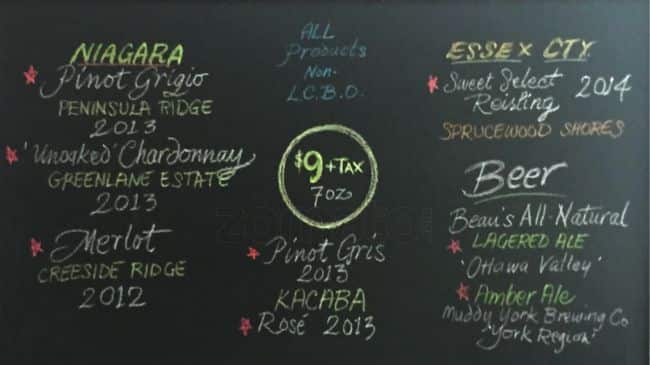 NIAGARA
Pinot Grigio
PENINSULA RIDGE
2013
'Unoaked' Chardonnay
GREENLANE ESTATE
2013
Merlot
CREESIDE RIDGE
2012
ALL
Products
Non-
L.C.B.O.
$9 + TAX
7oz
Pinot Gris
2013
KACABA
Rosé 2013
ESSEX CTY
Sweet Select 2014
Reisling
SPRUCEWOOD SHORES
Beer
Beau's All-Natural
LAGERED ALE
'Ottawa Valley'
Amber Ale
Muddy York Brewing Co.
'York Region'